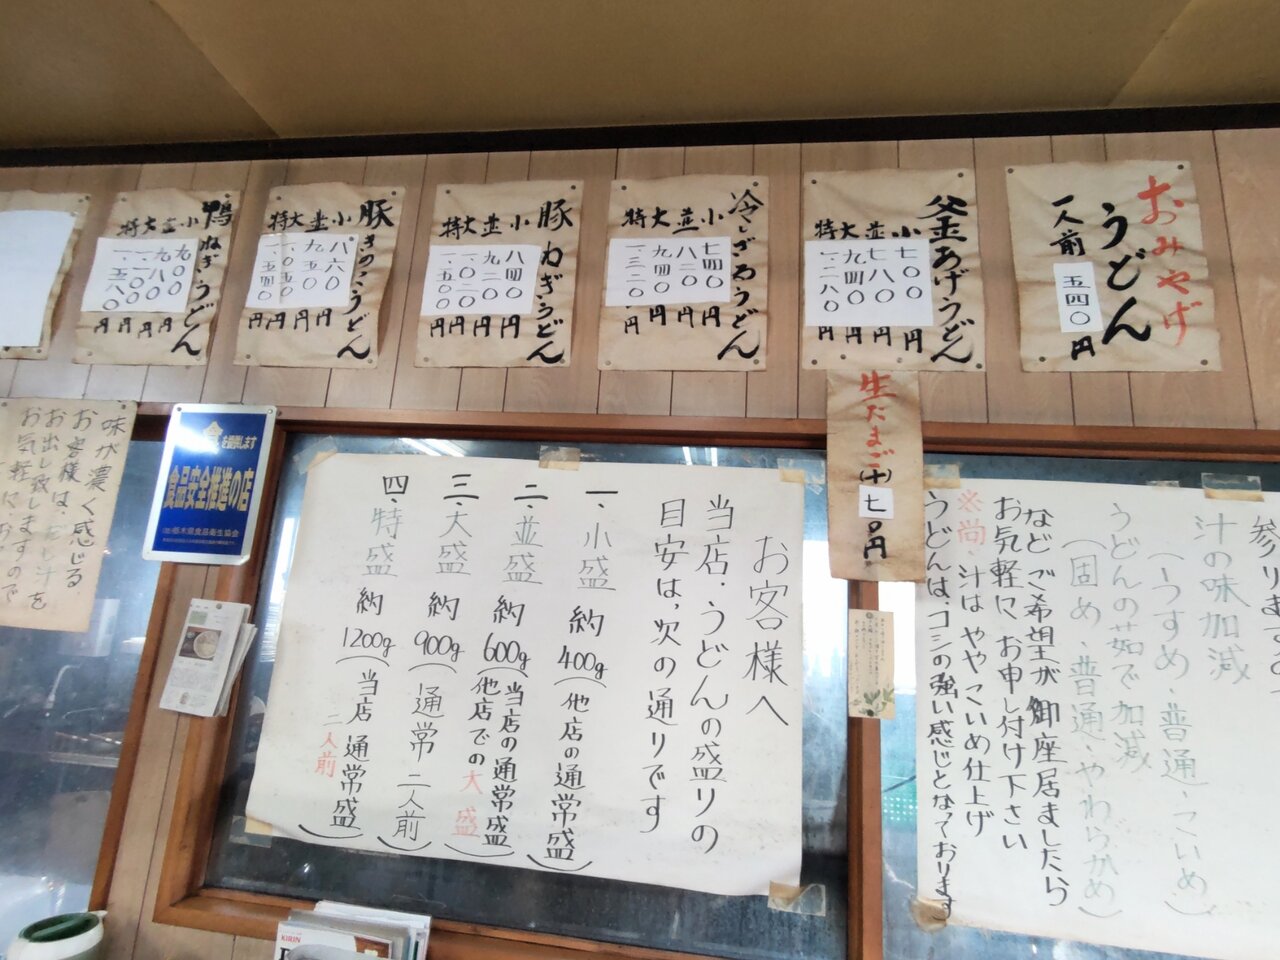 おみやげ
うどん
一人前
五四〇
円
釜あげうどん
小 七〇〇円
並 七八〇円
大 九四〇円
特 一、二八〇円
冷しざるうどん
小 七四〇円
並 八二〇円
大 九四〇円
特 一、三二〇円
豚ねぎうどん
小 八四〇円
並 九二〇円
大 一、〇二〇円
特 一、五〇〇円
豚きのこうどん
小 八六〇円
並 九五〇円
大 一、〇五〇円
特 一、五四〇円
鴨ねぎうどん
小 九〇〇円
並 九八〇円
大 一、一〇〇円
特 一、五八〇円
生たまご(十)七〇円
汁の味加減
(うすめ・普通・こいめ)
うどんの茹で加減
(固め、普通・やわらかめ)
などご希望が御座居ましたら
お気軽に、お申し付け下さい
※尚・汁はややこいめ仕上げ
うどんは、コシの強い感じとなっております
お客様へ
当店・うどんの盛りの
目安は、次の通りです
一、小盛 約400g(他店の通常盛)
二、並盛 約600g(当店の通常盛
他店での大盛)
三、大盛 約900g(通常 二人前)
四、特盛 約1200g(当店通常盛
二人前)
を提供します
食品安全推進の店
栃木県食品衛生協会
味が濃く感じる
お客様は、だし汁を
お出し致しますので
お気軽に
KIRIN